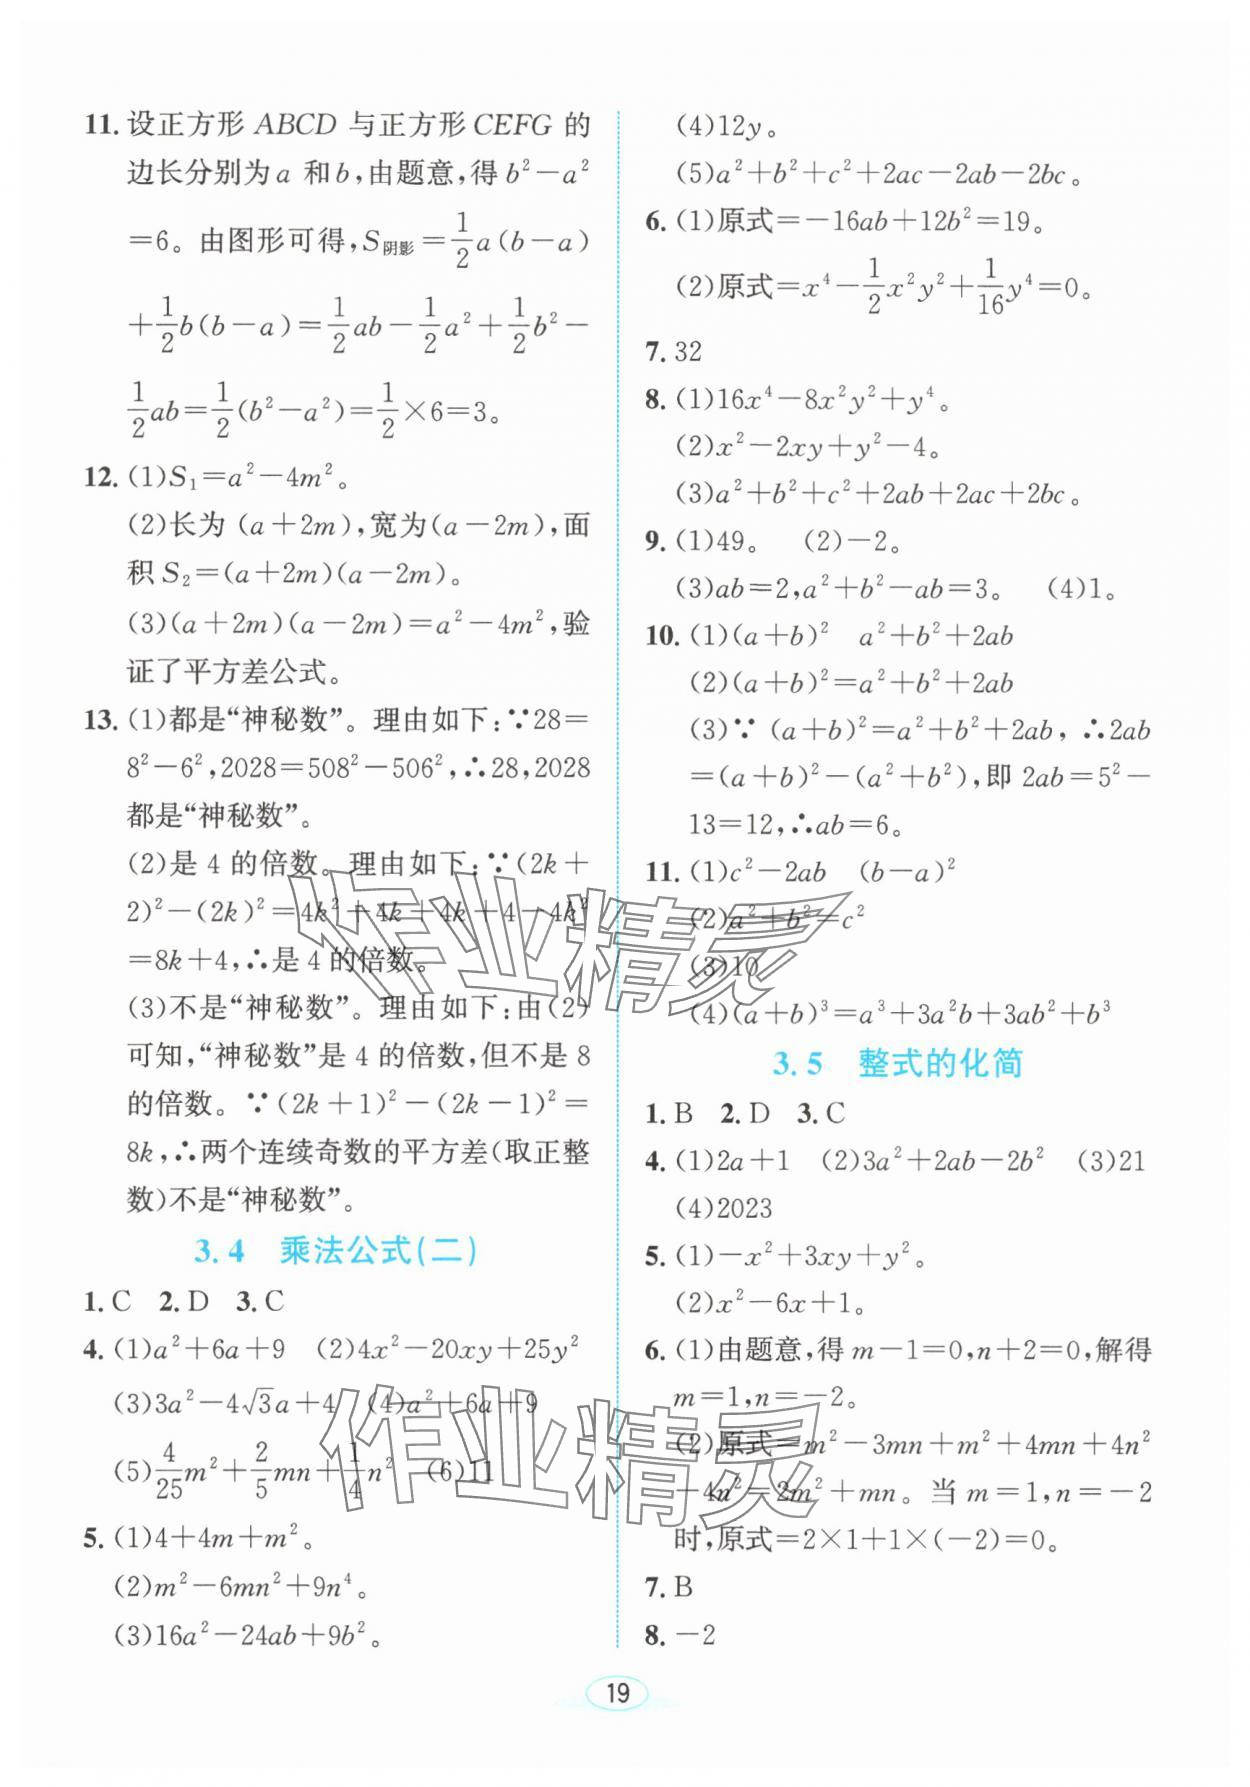 11. 设正方形 ABCD 与正方形 CEFG 的
边长分别为 a 和 b,由题意,得 b²－a²
=6。由图形可得,S阴影=1/2 a(b－a)
+1/2 b(b－a)=1/2 ab－1/2 a²+1/2 b²－
1/2 ab=1/2(b²－a²)=1/2×6=3。
12. (1)S₁=a²－4m²。
(2)长为 (a+2m),宽为(a－2m),面
积 S₂=(a+2m)(a－2m)。
(3)(a+2m)(a－2m)=a²－4m²,验
证了平方差公式。
13. (1)都是“神秘数”。理由如下:∵28=
8²－6²,2028=508²－506²,∴28,2028
都是“神秘数”。
(2)是 4 的倍数。理由如下:∵(2k+
2)²－(2k)²=4k²+4k+4k+4－4k²
=8k+4,∴是 4 的倍数。
(3)不是“神秘数”。理由如下:由(2)
可知,“神秘数”是 4 的倍数,但不是 8
的倍数。∵(2k+1)²－(2k－1)²=
8k,∴两个连续奇数的平方差(取正整
数)不是“神秘数”。
3.4 乘法公式(二)
1. C 2. D 3. C
4. (1)a²+6a+9 (2)4x²－20xy+25y²
(3)3a²－4√3a+4 (4)a²+6a+9
(5)4/25 m²+2/5 mn+1/4 n² (6)11
5. (1)4+4m+m²。
(2)m²－6mn²+9n⁴。
(3)16a²－24ab+9b²。
(4)12y。
(5)a²+b²+c²+2ac－2ab－2bc。
6. (1)原式=－16ab+12b²=19。
(2)原式=x⁴－1/2 x²y²+1/16 y⁴=0。
7. 32
8. (1)16x⁴－8x²y²+y⁴。
(2)x²－2xy+y²－4。
(3)a²+b²+c²+2ab+2ac+2bc。
9. (1)49。 (2)－2。
(3)ab=2,a²+b²－ab=3。 (4)1。
10. (1)(a+b)² a²+b²+2ab
(2)(a+b)²=a²+b²+2ab
(3)∵ (a+b)²=a²+b²+2ab, ∴2ab
=(a+b)²－(a²+b²),即 2ab=5²－
13=12,∴ab=6。
11. (1)c²－2ab (b－a)²
(2)a²+b²=c²
(3)10
(4)(a+b)³=a³+3a²b+3ab²+b³
3.5 整式的化简
1. B 2. D 3. C
4. (1)2a+1 (2)3a²+2ab－2b² (3)21
(4)2023
5. (1)－x²+3xy+y²。
(2)x²－6x+1。
6. (1)由题意,得 m－1=0,n+2=0,解得
m=1,n=－2。
(2)原式=m²－3mn+m²+4mn+4n²
－4n²=2m²+mn。当 m=1,n=－2
时,原式=2×1+1×(－2)=0。
7. B
8. －2
19
作业精灵
作业精灵